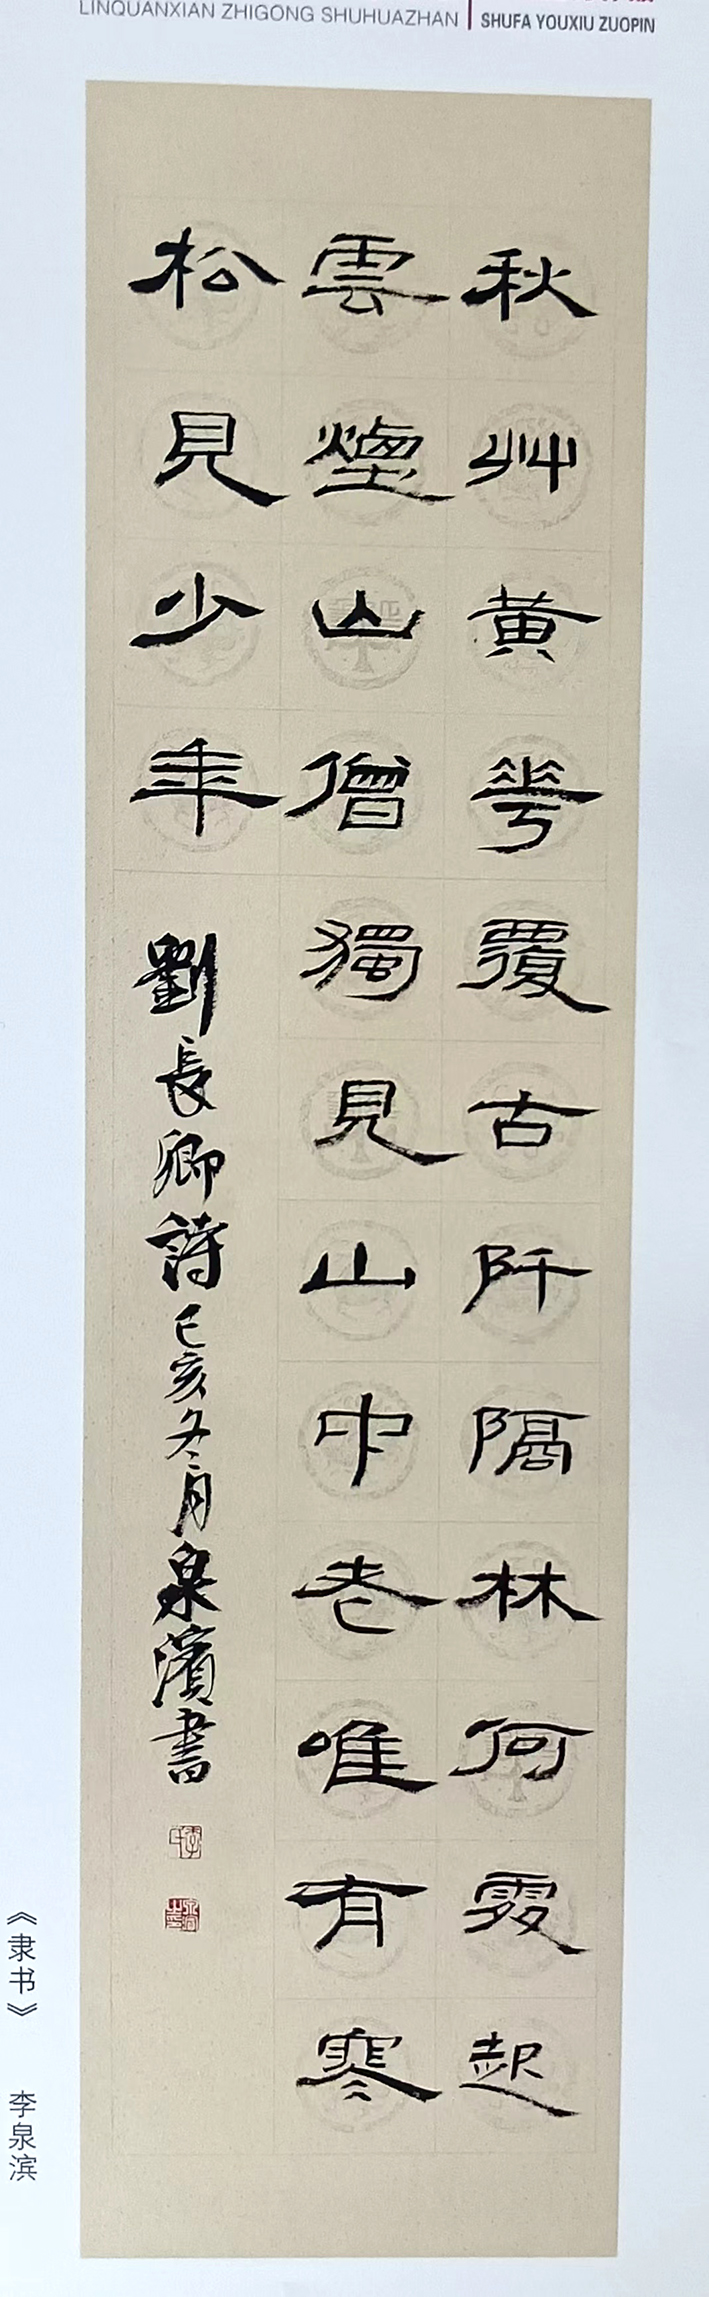 LINQUANXIAN ZHIGONG SHUHUAZHAN
SHUFA YOUXIU ZUOPIN
秋艸黄華覆古阡隔林何處起
雲煙山僧獨見山中老唯有寒
松見少年
劉長卿詩己亥冬月泉濱書
《隶书》 李泉滨